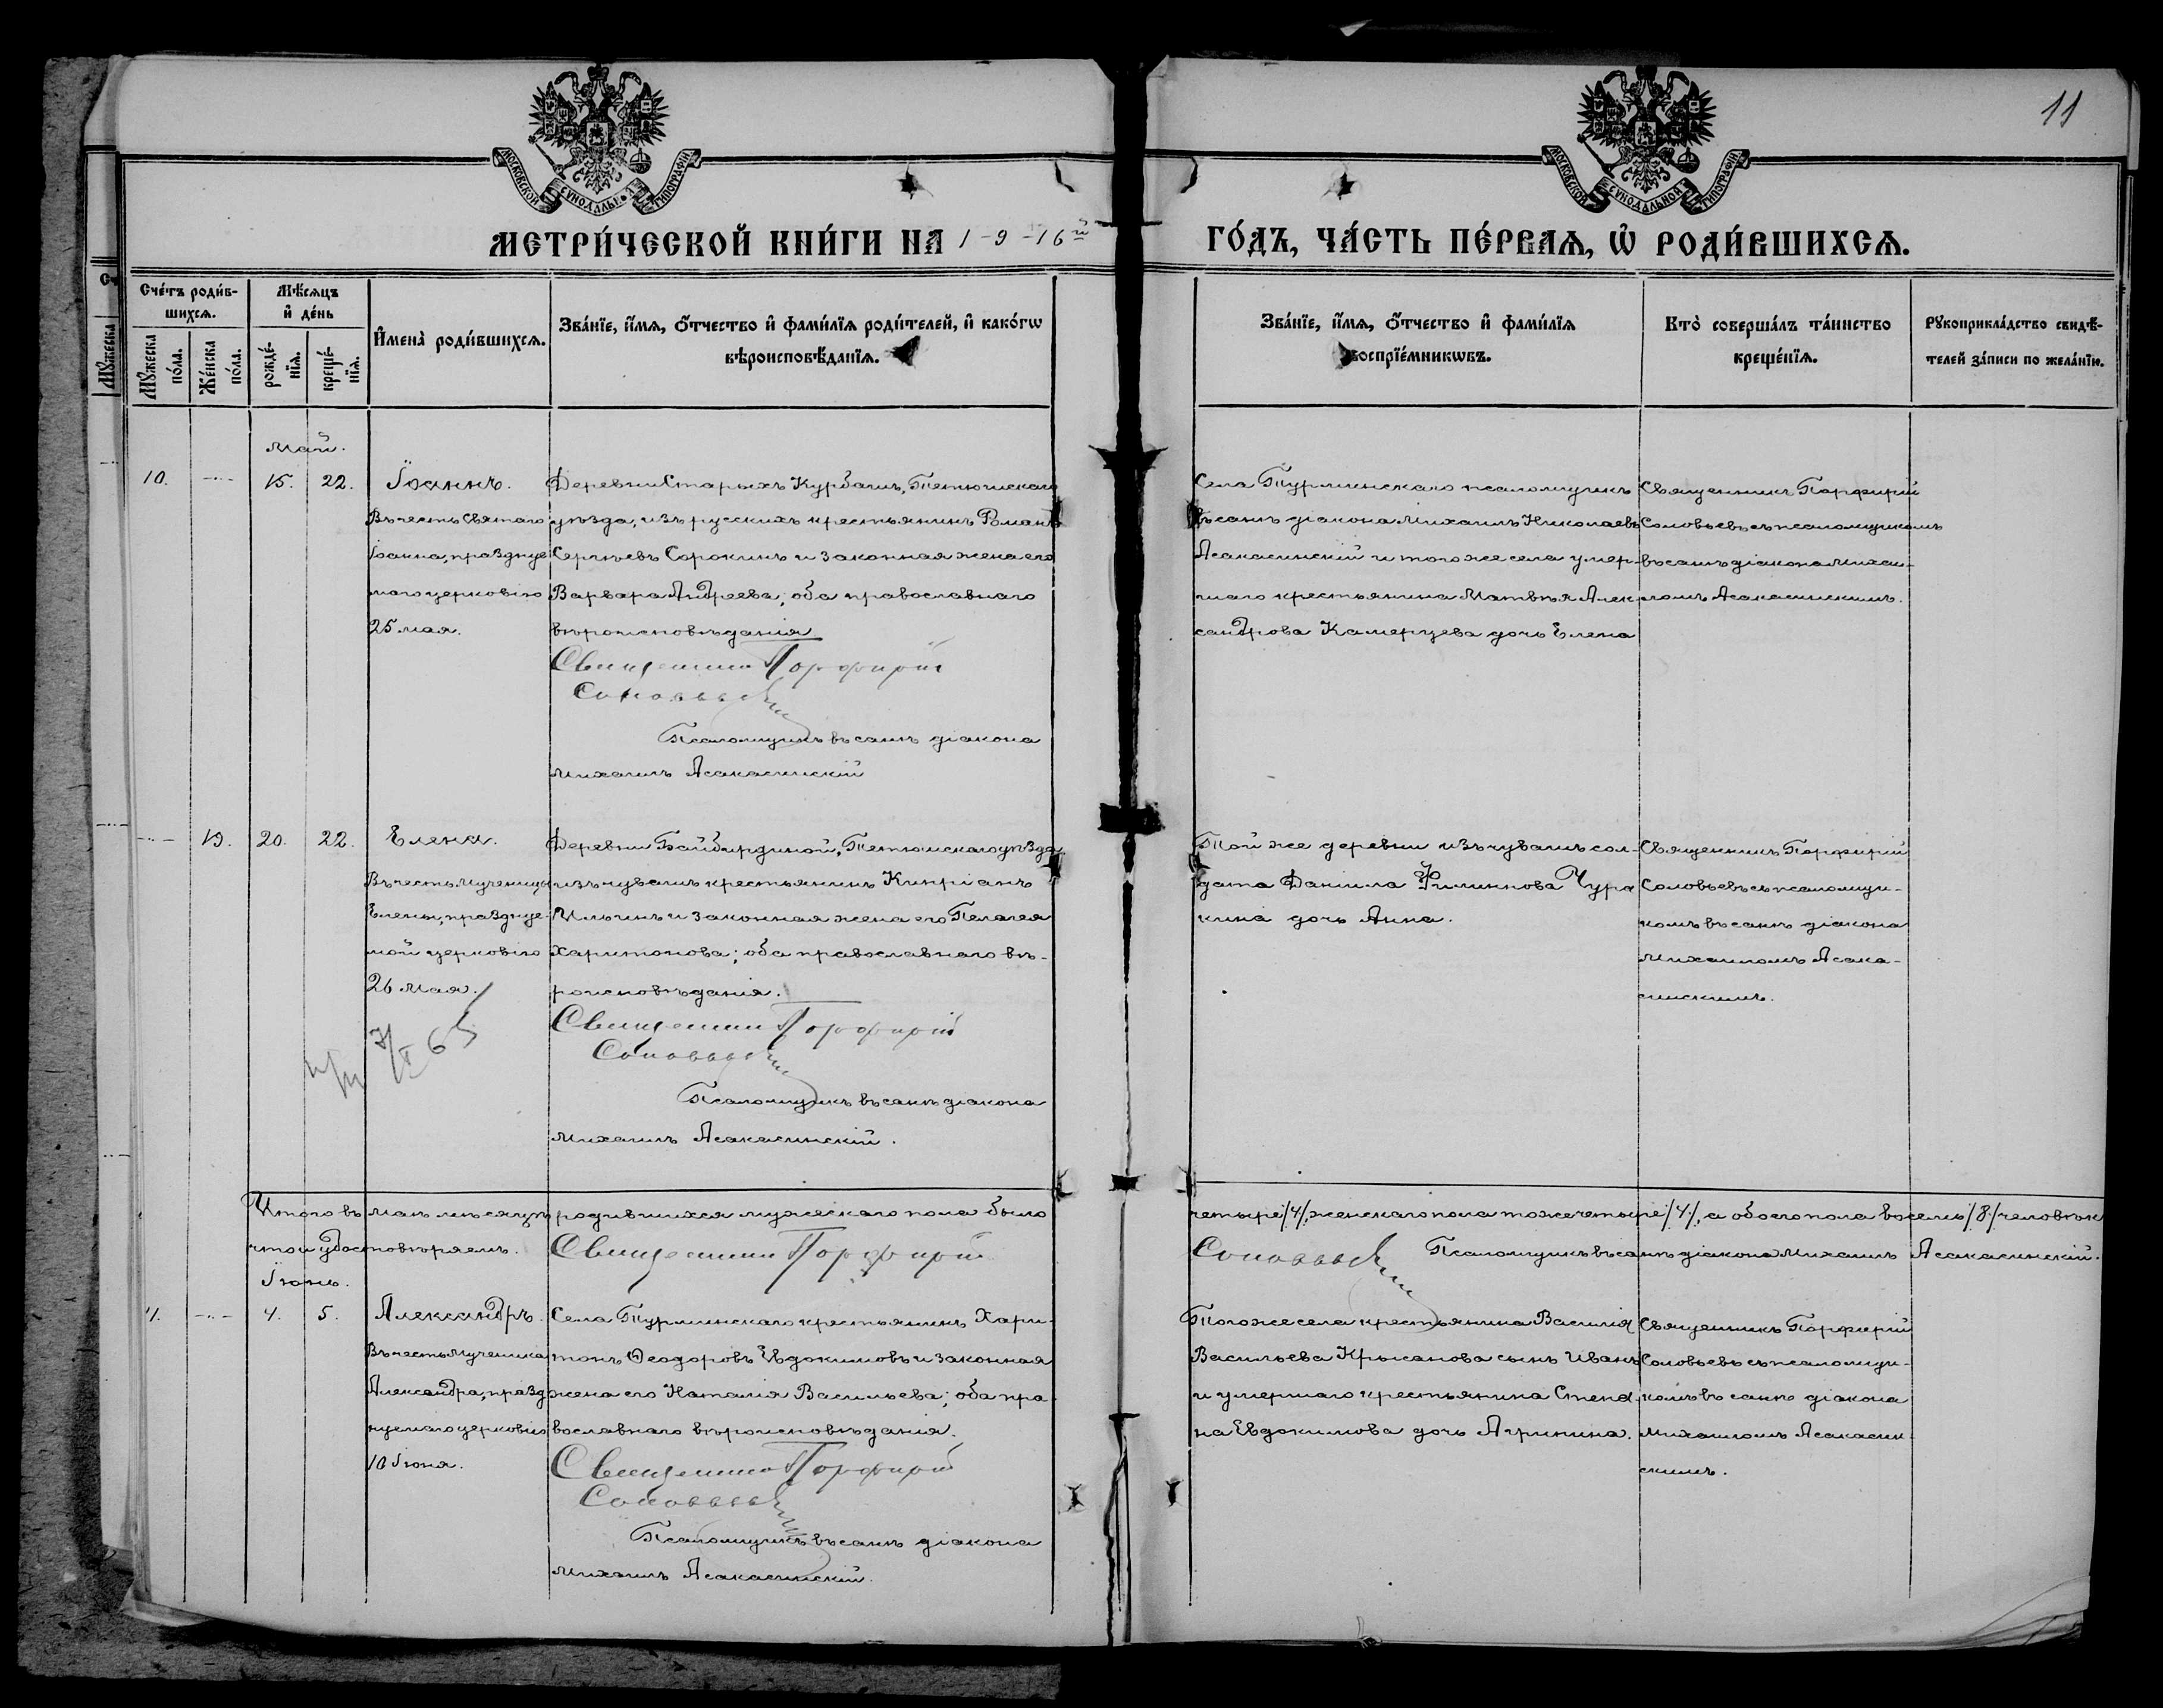 11
МОСКОВСКОЙ СѴНОДАЛЬНОЙ ТИПОГРАФІИ
МОСКОВСКОЙ СѴНОДАЛЬНОЙ ТИПОГРАФІИ
МЕТРИ́ЧЕСКОЙ КНИ́ГИ НА 1-9-16й ГО́ДЪ, ЧА́СТЬ ПЕ́РВАѦ, Ѡ҆ РОДИ́ВШИХСѦ.
Сче́тъ роди́в-
шихсѧ.
Мꙋ́жеска по́ла.
Же́нска по́ла.
Мѣ́сѧцъ
и҆ де́нь
рожде́-
нїѧ.
креще́-
нїѧ.
И҆мена̀ роди́вшихсѧ.
Зва́нїе, и҆́мѧ, ѻ҆́тчество и҆ фами́лїѧ роди́телей, и҆ како́гѡ
вѣроисповѣ́данїѧ.
Зва́нїе, и҆́мѧ, ѻ҆́тчество и҆ фами́лїѧ
воспрїе́мникѡвъ.
Кто̀ соверша́лъ та́инство
креще́нїѧ.
Рꙋкоприкла́дство свидѣ́-
телей за́писи по жела́нїю.
Май.
10.
15.
22.
Іоаннъ.
Въ честь Святаго
Іоанна, праздnуе
маго церковію
25 мая.
Деревни Старыхъ Курбашъ, Тетюшскаго
уѣзда, изъ русскихъ крестьянинъ Романъ
Сергѣевъ Сорокинъ и законная жена его
Варвара Андреева; оба православнаго
вѣроисповѣданія
Священникъ Порфирій
Соловьевъ
Псаломщикъ въ санѣ діакона
Михаилъ Асакасинскій
Села Турминскаго псаломщикъ
въ санѣ діакона Михаилъ Николаевъ
Асакасинскій и того же села умер-
шаго крестьянина Матвѣя Алек-
сандрова Камерцева дочь Елена
Священникъ Порфирій
Соловьевъ съ псаломщикомъ
въ санѣ діакона Михаи-
ломъ Асакасинскимъ.
19.
20.
22.
Елена.
Въ честь мученицы
Елены, празднуе-
мой церковію
26 мая.
Деревни Байбирдиной, Тетюшскаго уѣзда
изъ чувашъ крестьянинъ Кипріанъ
Ильинъ и законная жена его Пелагея
Харитонова; оба православнаго вѣ-
роисповѣданія.
Священникъ Порфирій
Соловьевъ
Псаломщикъ въ санѣ діакона
Михаилъ Асакасинскій.
Той же деревни изъ чувашъ сол-
дата Даніила Филиппова Чура
кина дочь Анна.
Священникъ Порфирій
Соловьевъ съ псаломщи-
комъ въ санѣ діакона
Михаиломъ Асака-
синскимъ.
Итого въ маѣ мѣсяцѣ родившихся мужескаго пола было четыре /4/, женскаго пола тоже четыре /4/, а обоего пола восемь /8/ человѣкъ
что и удостовѣряемъ. Священникъ Порфирій Соловьевъ Псаломщикъ въ санѣ діакона Михаилъ Асакасинскій.
Іюнь.
4.
5.
Александръ.
Въ честь мученика
Александра, празд
нуемаго церковію
10 Іюня.
Села Турминскаго крестьянинъ Хари-
тонъ Ѳеодоровъ Евдокимовъ и законная
жена его Наталія Васильева; оба пра-
вославнаго вѣроисповѣданія.
Священникъ Порфирій
Соловьевъ
Псаломщикъ въ санѣ діакона
Михаилъ Асакасинскій.
Того же села крестьянина Василія
Васильева Крысанова сынъ Иванъ
и умершаго крестьянина Степа
на Евдокимова дочь Агрипина.
Священникъ Порфирій
Соловьевъ съ псаломщи-
комъ въ санѣ діакона
Михаиломъ Асакасин-
скимъ.